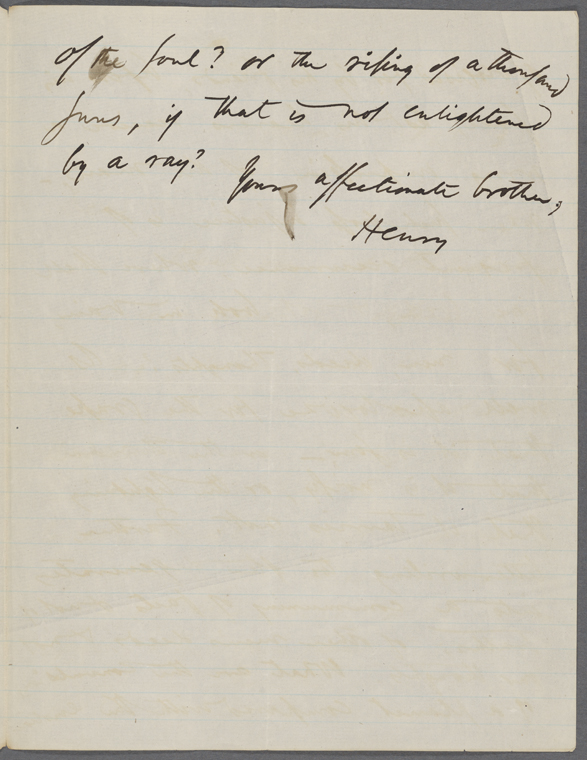 of the soul? or the rising of a thousand
suns, if that is not enlightened
by a ray?
Your affectionate brother,
Henry